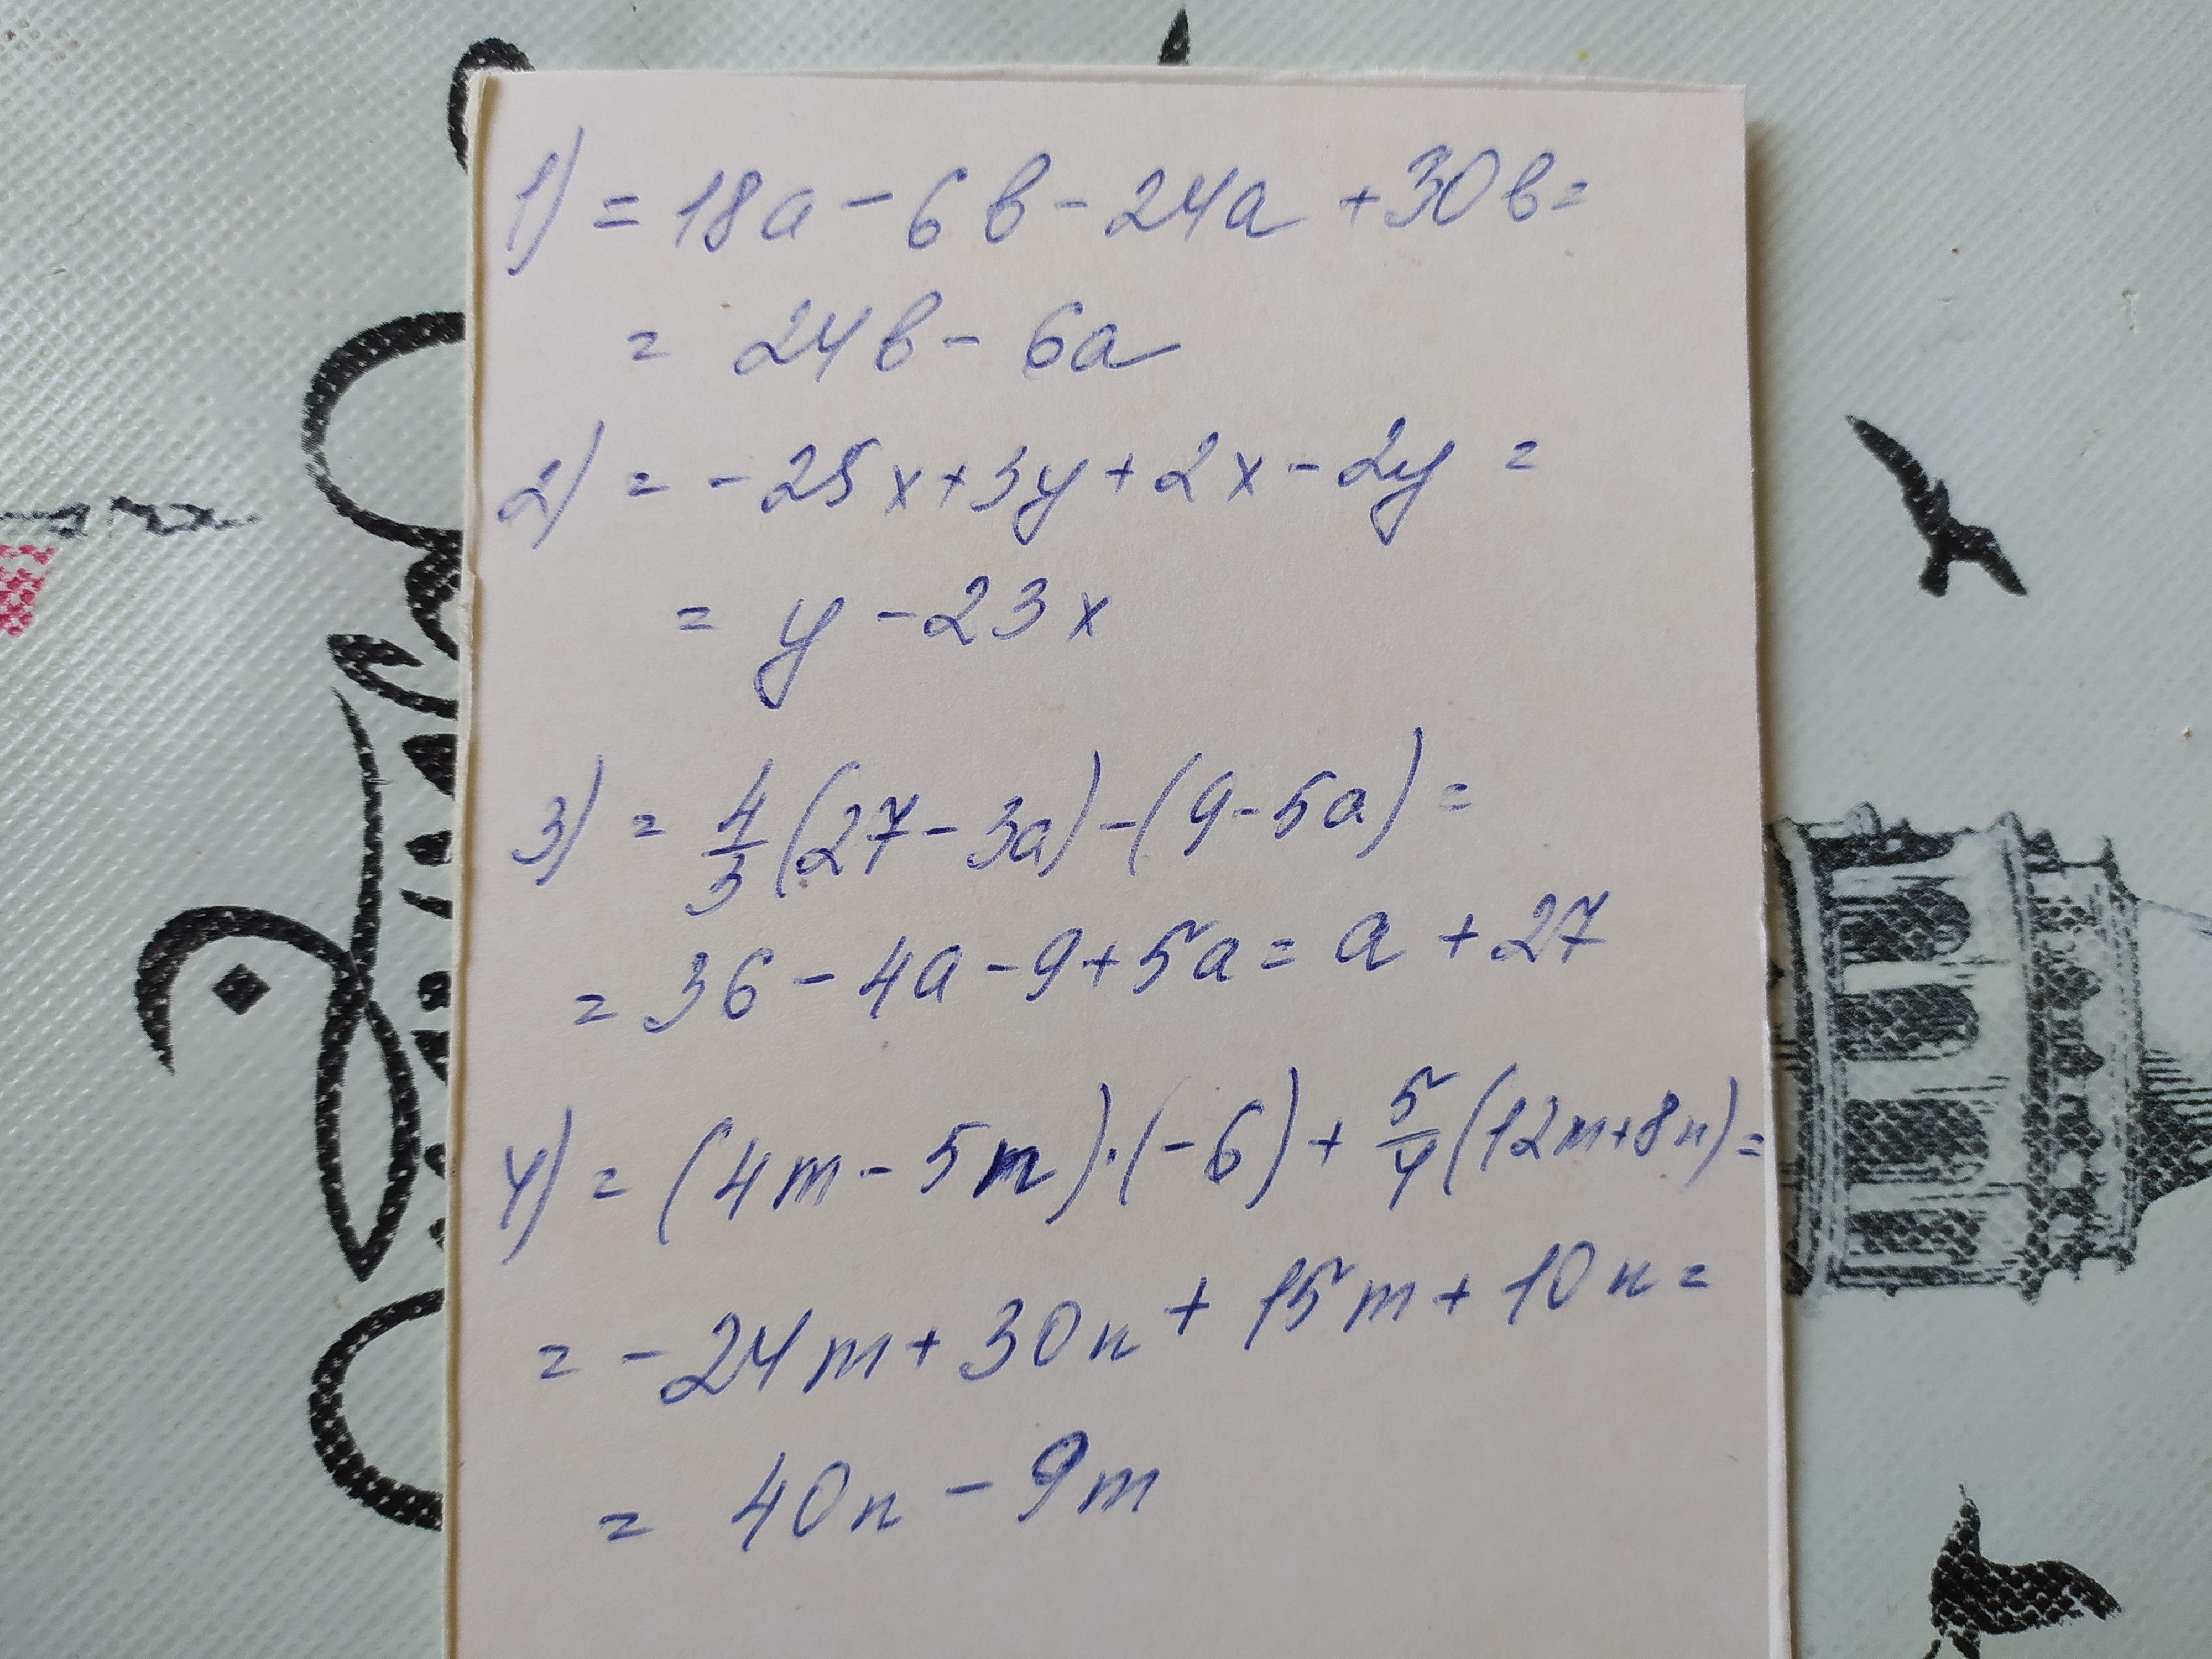 1) = 18a - 6b - 24a + 30b =
= 24b - 6a
2) = -25x + 3y + 2x - 2y =
= y - 23x
3) = 4/3 (27 - 3a) - (9 - 5a) =
= 36 - 4a - 9 + 5a = a + 27
4) = (4m - 5n)·(-6) + 5/4 (12m + 8n) =
= -24m + 30n + 15m + 10n =
= 40n - 9m